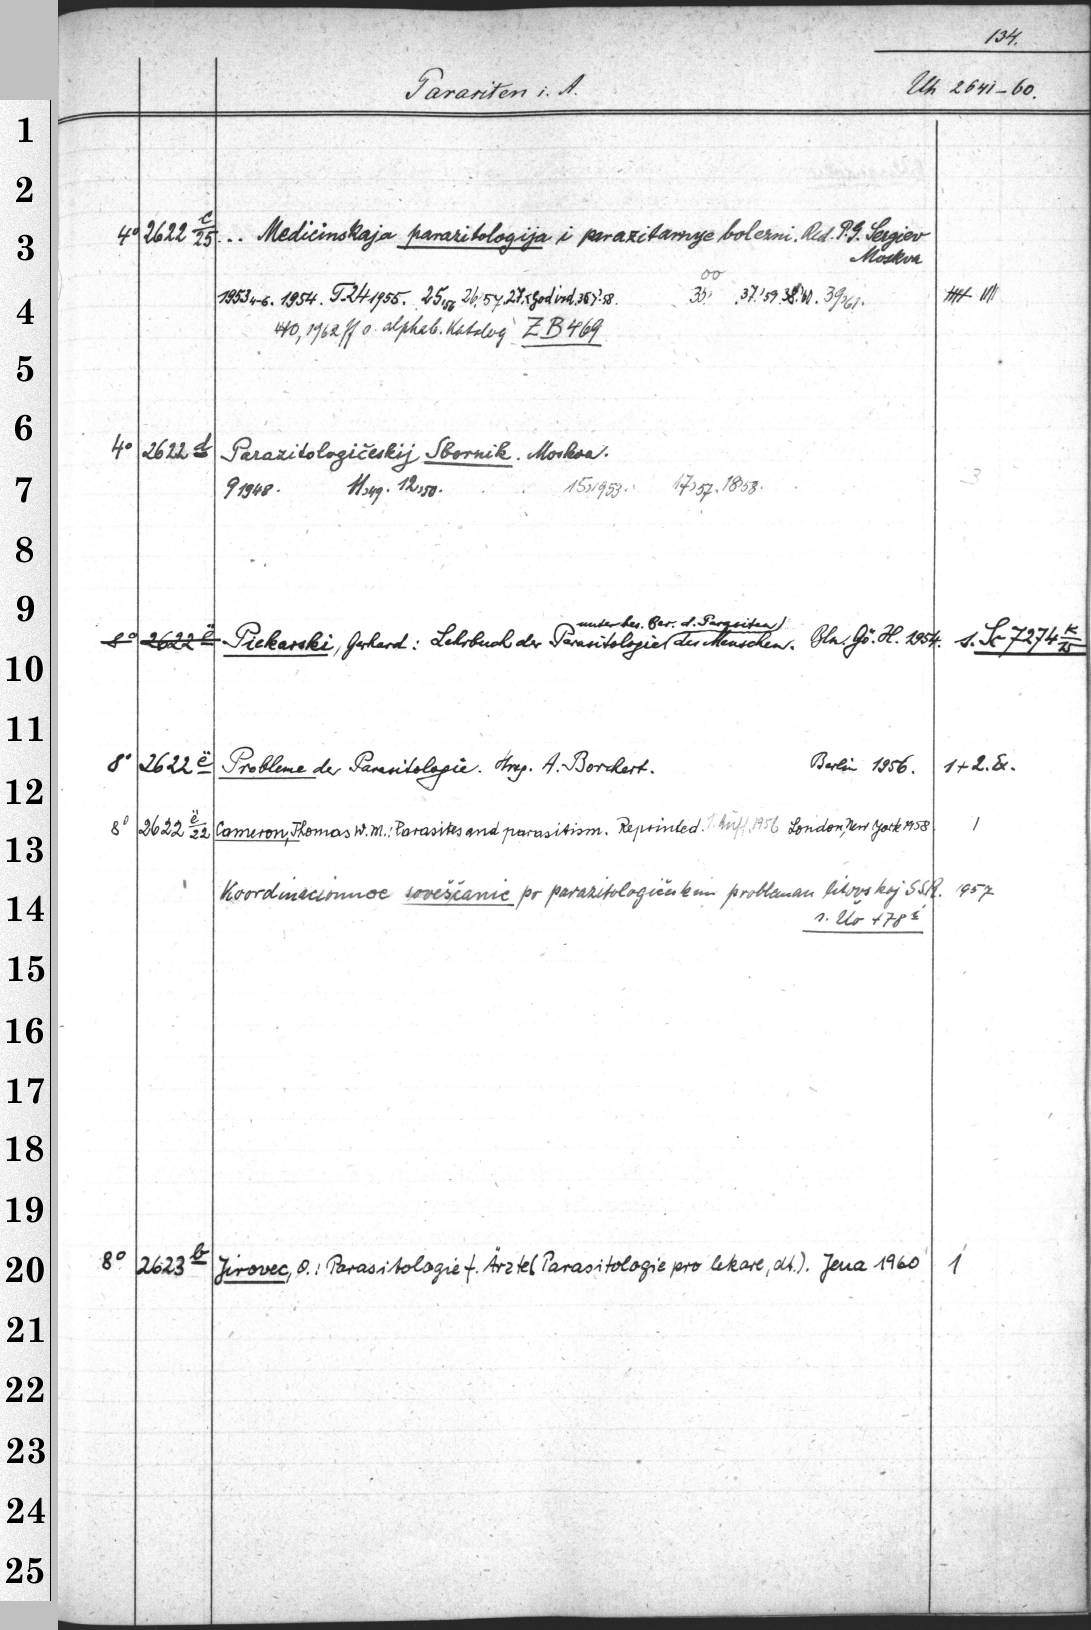 134.
Parasiten i. A. Uh 2641-60.
1
2
3
4
5
6
7
8
9
10
11
12
13
14
15
16
17
18
19
20
21
22
23
24
25
4° 2622 c/25 ... Medicinskaja parazitologija i parazitarnye bolezni. Red. P.G. Sergiev
Moskva
1953 4-6. 1954. T.24 1955. 25,56 26,57 27. 58. 37,'59. 38,'60. 39,'61.
40, 1962 ff s. alphab. Katalog ZB 469
4° 2622 d Parazitologičeskij Sbornik. Moskva.
9 1948. 11,49. 12,50. 15,1953. 17,57. 18,58. 3
unter bes. Ber. d. Parasiten
8° 2622 ë Piekarski, Gerhard: Lehrbuch der Parasitologie des Menschen. Bln, Gö. H. 1954. s. 7274 K/25
8° 2622 ë Probleme der Parasitologie. Hrsg. A. Borchert. Berlin 1956. 1+2. Ex.
8° 2622 ë/22 Cameron, Thomas W.M.: Parasites and parasitism. Reprinted. 1. Aufl. 1956 London, New York 1958. 1
Koordinacionnoe soveščanie po parazitologičeskim problemam litovskoj SSR. 1957
s. Uo 478
8° 2623 b Jirovec, O.: Parasitologie f. Ärzte (Parasitologie pro lekare, dt.). Jena 1960 1